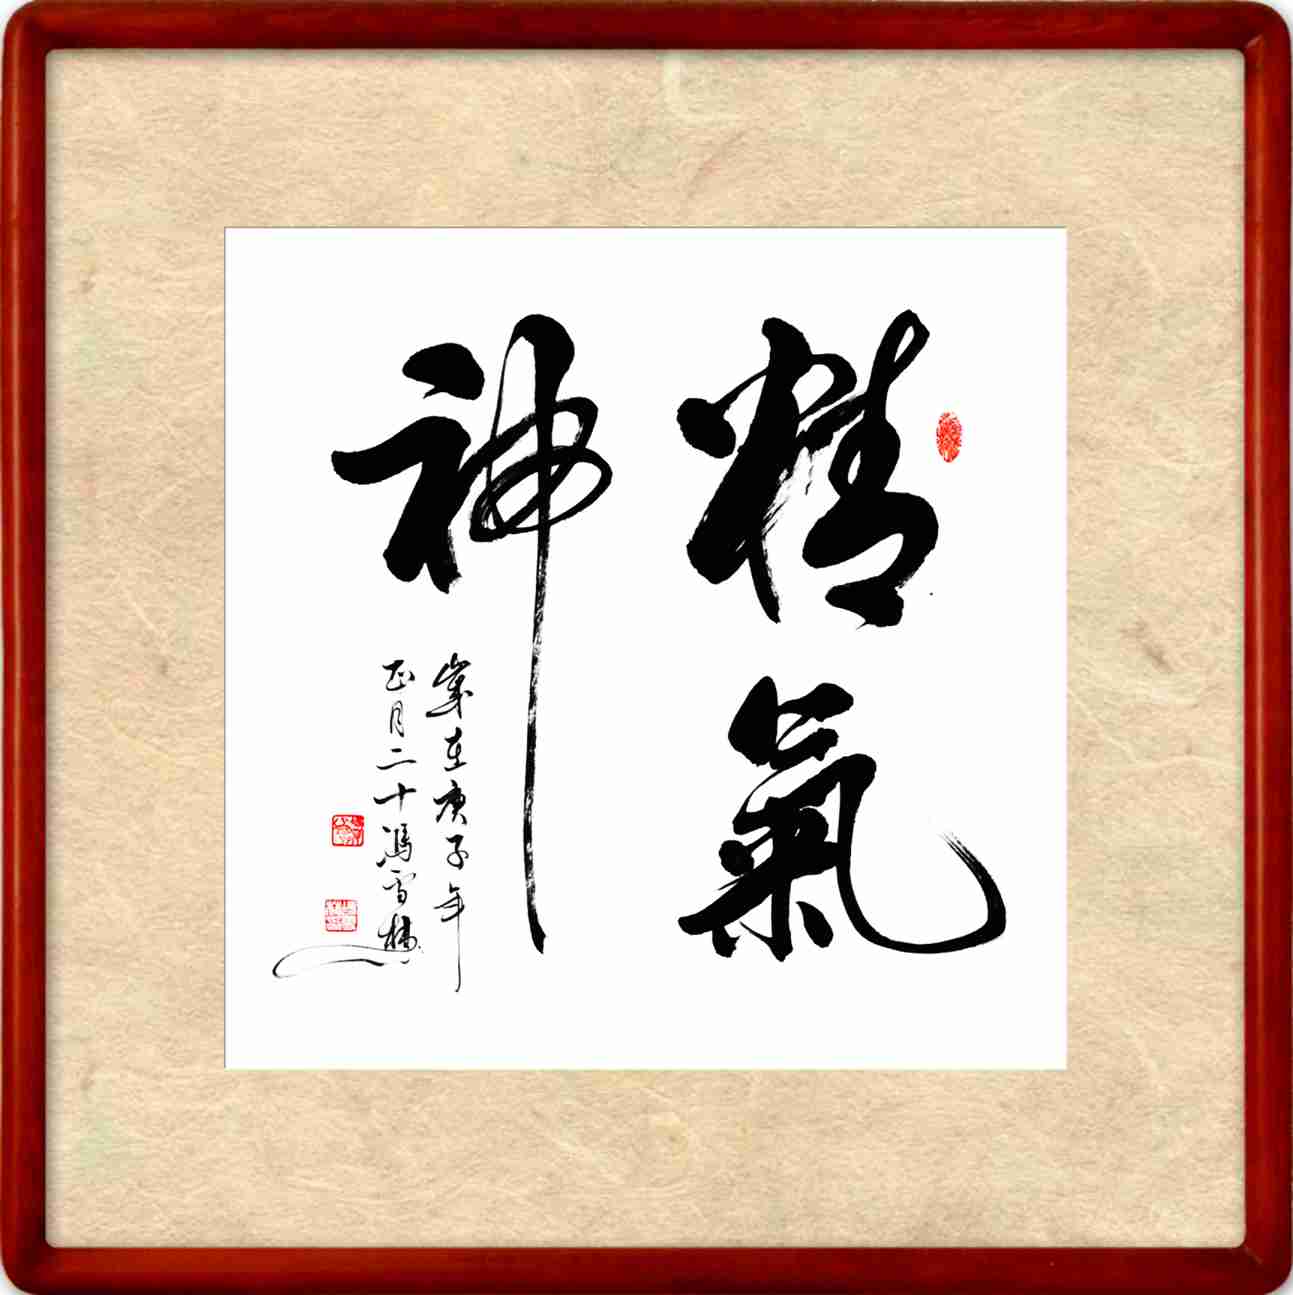 精氣
神
歲在庚子年
正月二十馮雪梅